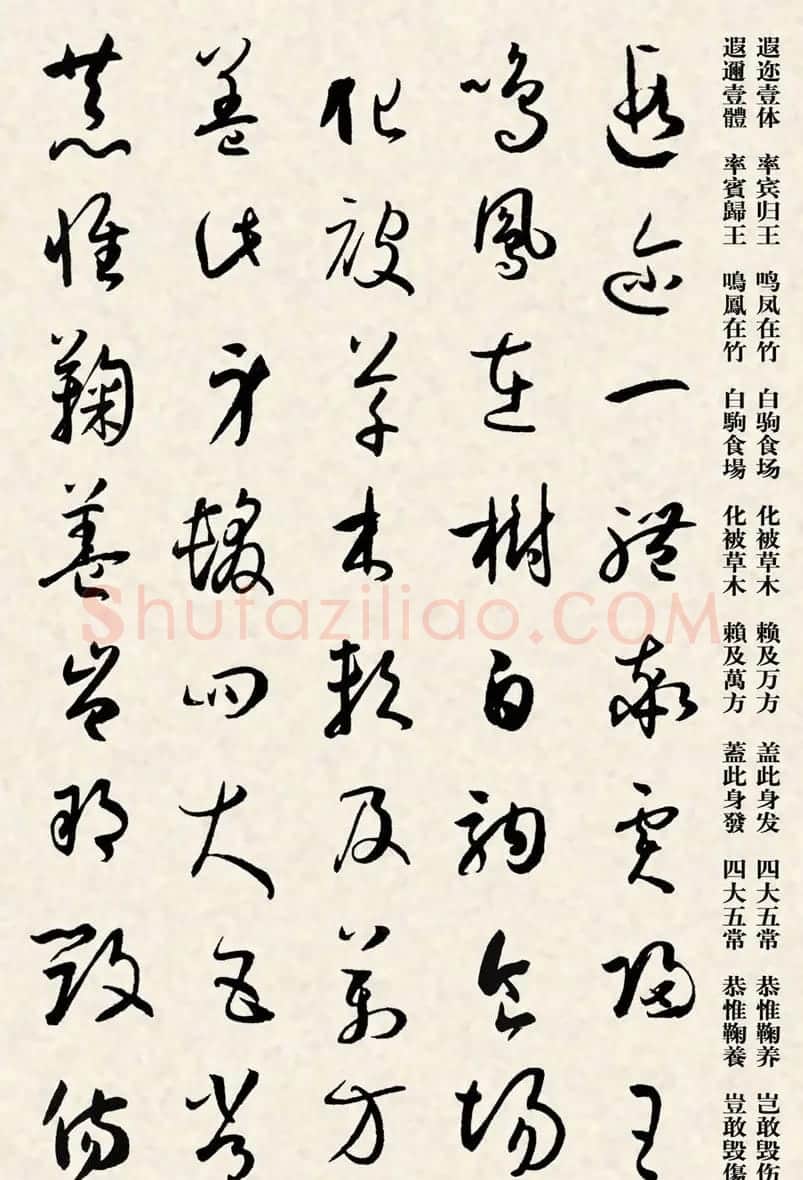 遐迩壹体 率宾归王 鸣凤在竹 白驹食场 化被草木 赖及万方 盖此身发 四大五常 恭惟鞠养 岂敢毁伤
遐邇壹體 率賓歸王 鳴鳳在竹 白駒食場 化被草木 賴及萬方 蓋此身發 四大五常 恭惟鞠養 豈敢毁傷
遐迩一體率賓歸王
鳴鳳在樹白駒食場
化被草木賴及萬方
蓋此身髮四大五常
恭惟鞠養豈敢毀傷
Shufaziliao.COM